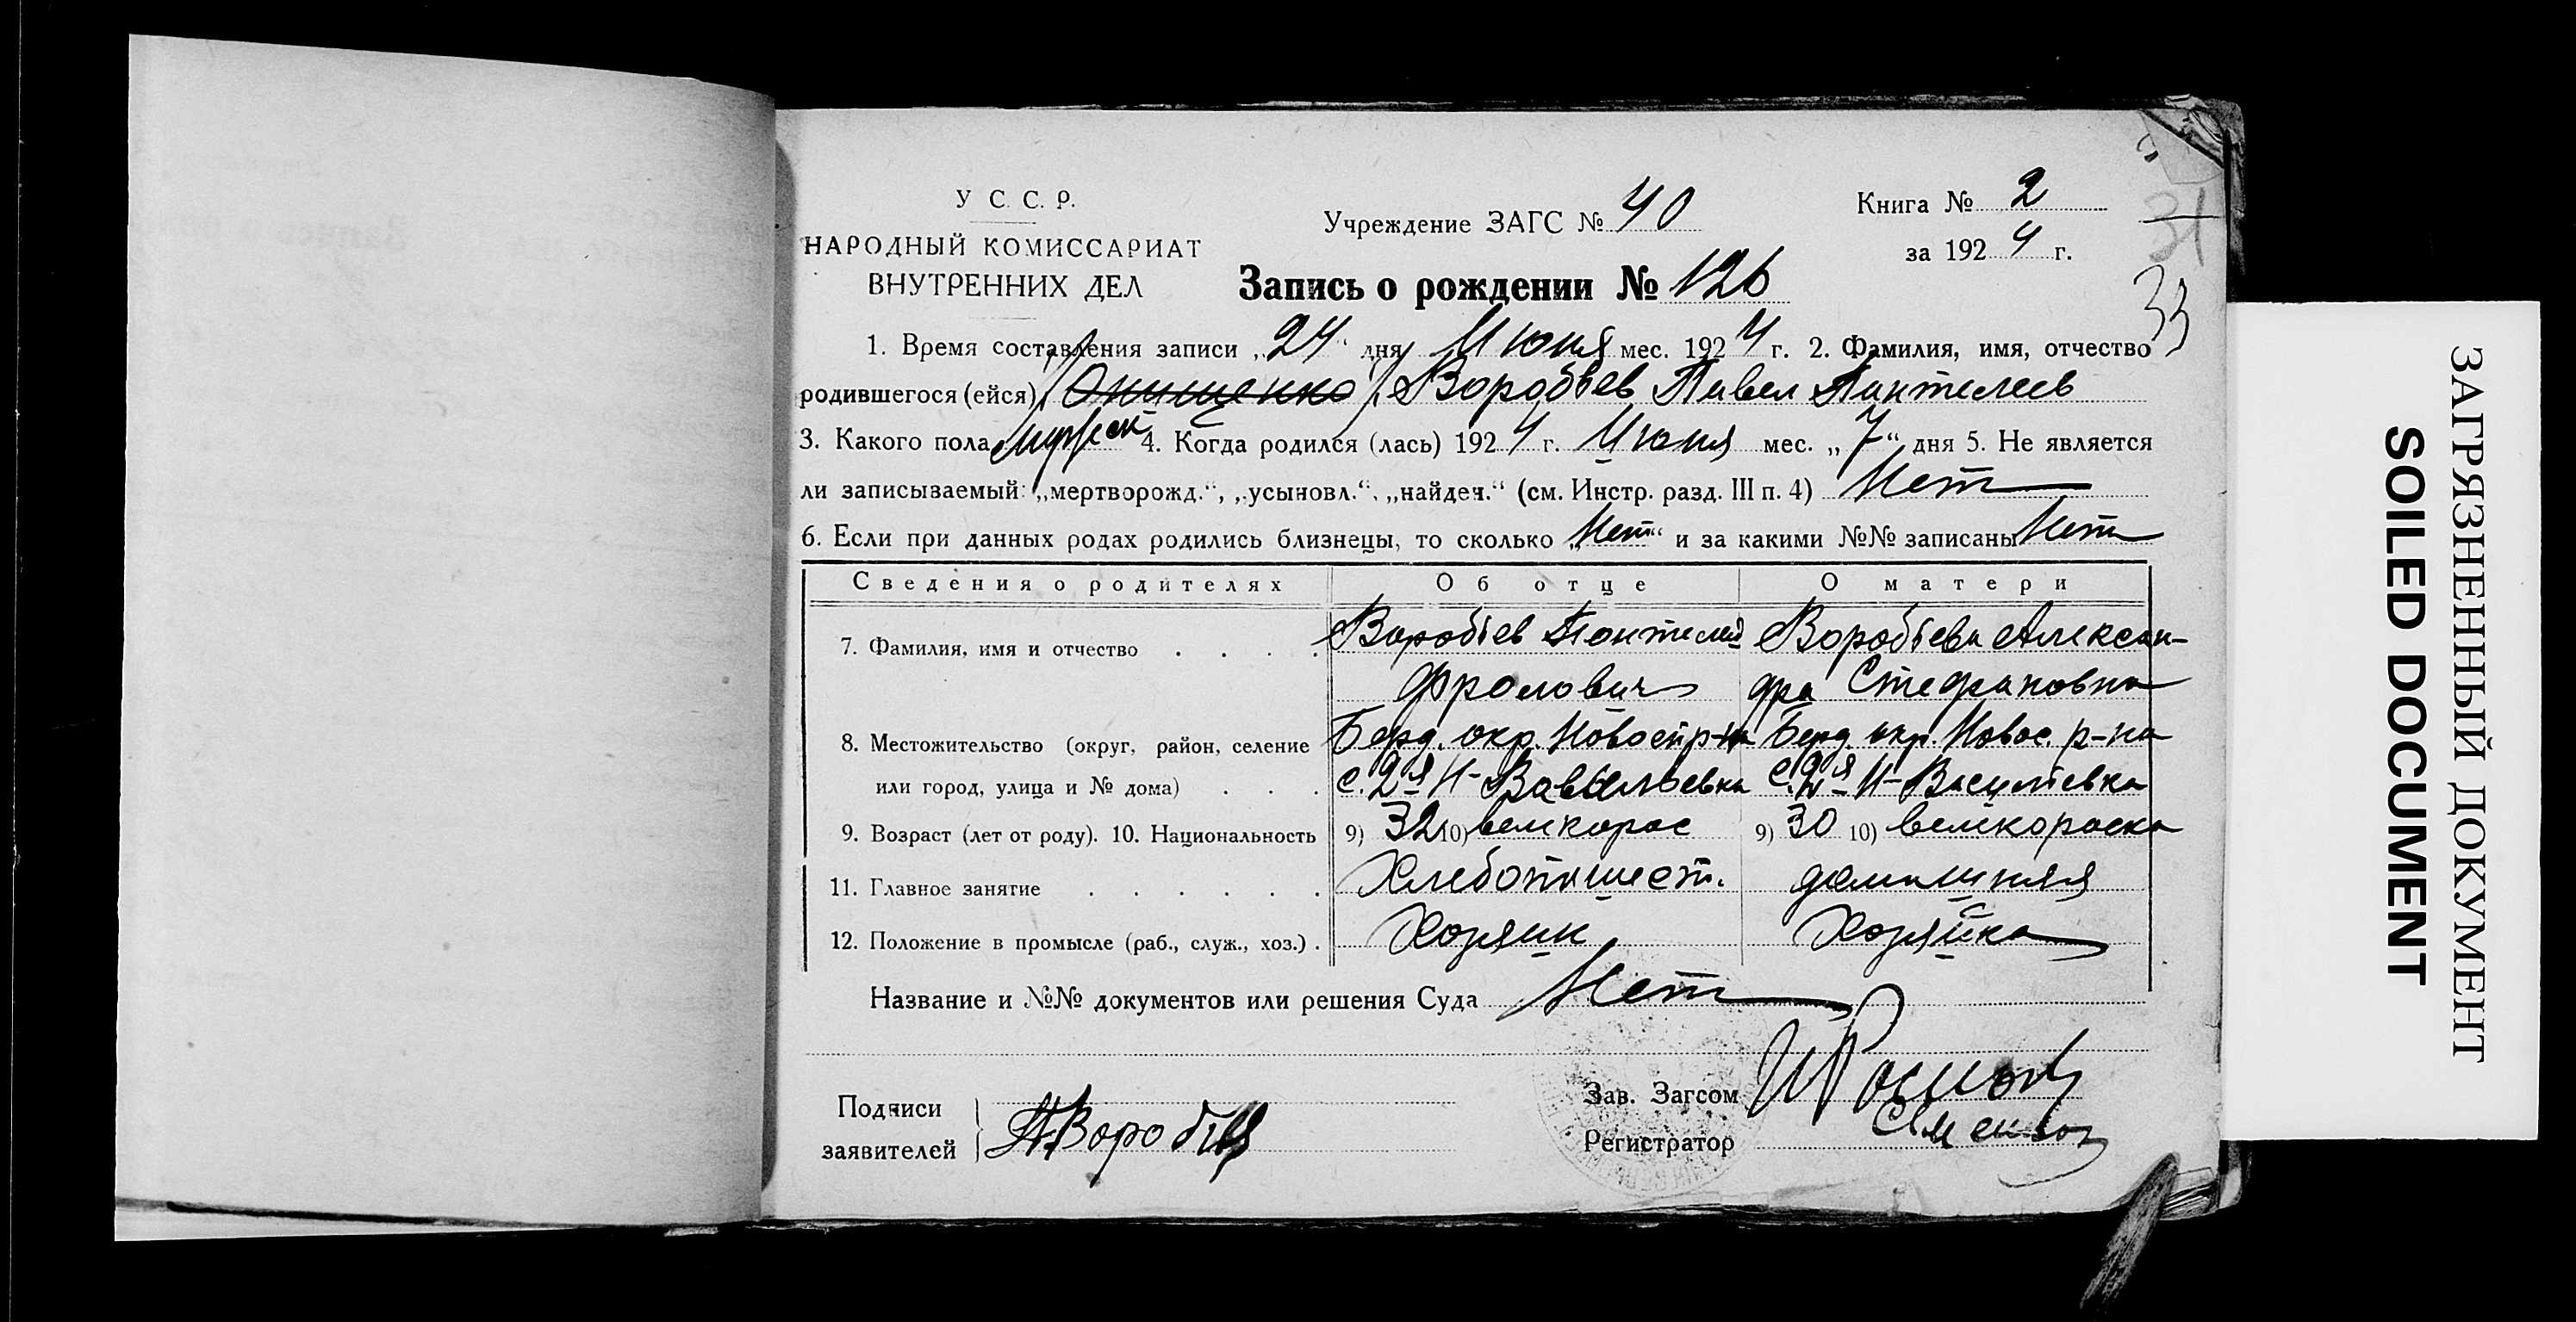 У. С. С. Р.
НАРОДНЫЙ КОМИССАРИАТ
ВНУТРЕННИХ ДЕЛ
Учреждение ЗАГС № 40
Книга № 2
за 1924 г.
31
33
Запись о рождении № 126
1. Время составления записи „24“ дня Июня мес. 1924 г. 2. Фамилия, имя, отчество
родившегося (ейся) /Онищенко/. Воробьев Павел Пантелеев
3. Какого пола мужск 4. Когда родился (лась) 1924 г. Июня мес. „7“ дня 5. Не является
ли записываемый: „мертворожд.“, „усыновл.“, „найден.“ (см. Инстр. разд. III п. 4) Нет
6. Если при данных родах родились близнецы, то сколько „Нет“ и за какими №№ записаны Нет
Сведения о родителях Об отце О матери
7. Фамилия, имя и отчество . . . . Воробіев Пантелей Воробіева Алексан-
Фролович дра Стефановна
8. Местожительство (округ, район, селение Берд. окр. Новосп р-на Берд. окр. Новос. р-на
или город, улица и № дома) . . . с. 2я Н- с. 2я Н-Василіевка
9. Возраст (лет от роду). 10. Национальность 9) 32 10) великорос 9) 30 10) великороска
11. Главное занятие . . . . . . Хлебопашест. домашняя
12. Положение в промысле (раб., служ., хоз.) . Хозяин Хозяйка
Название и №№ документов или решения Суда Нет
Подписи
заявителей
П Воробіев
Зав. Загсом
Регистратор
ЗАГРЯЗНЕННЫЙ ДОКУМЕНТ
SOILED DOCUMENT